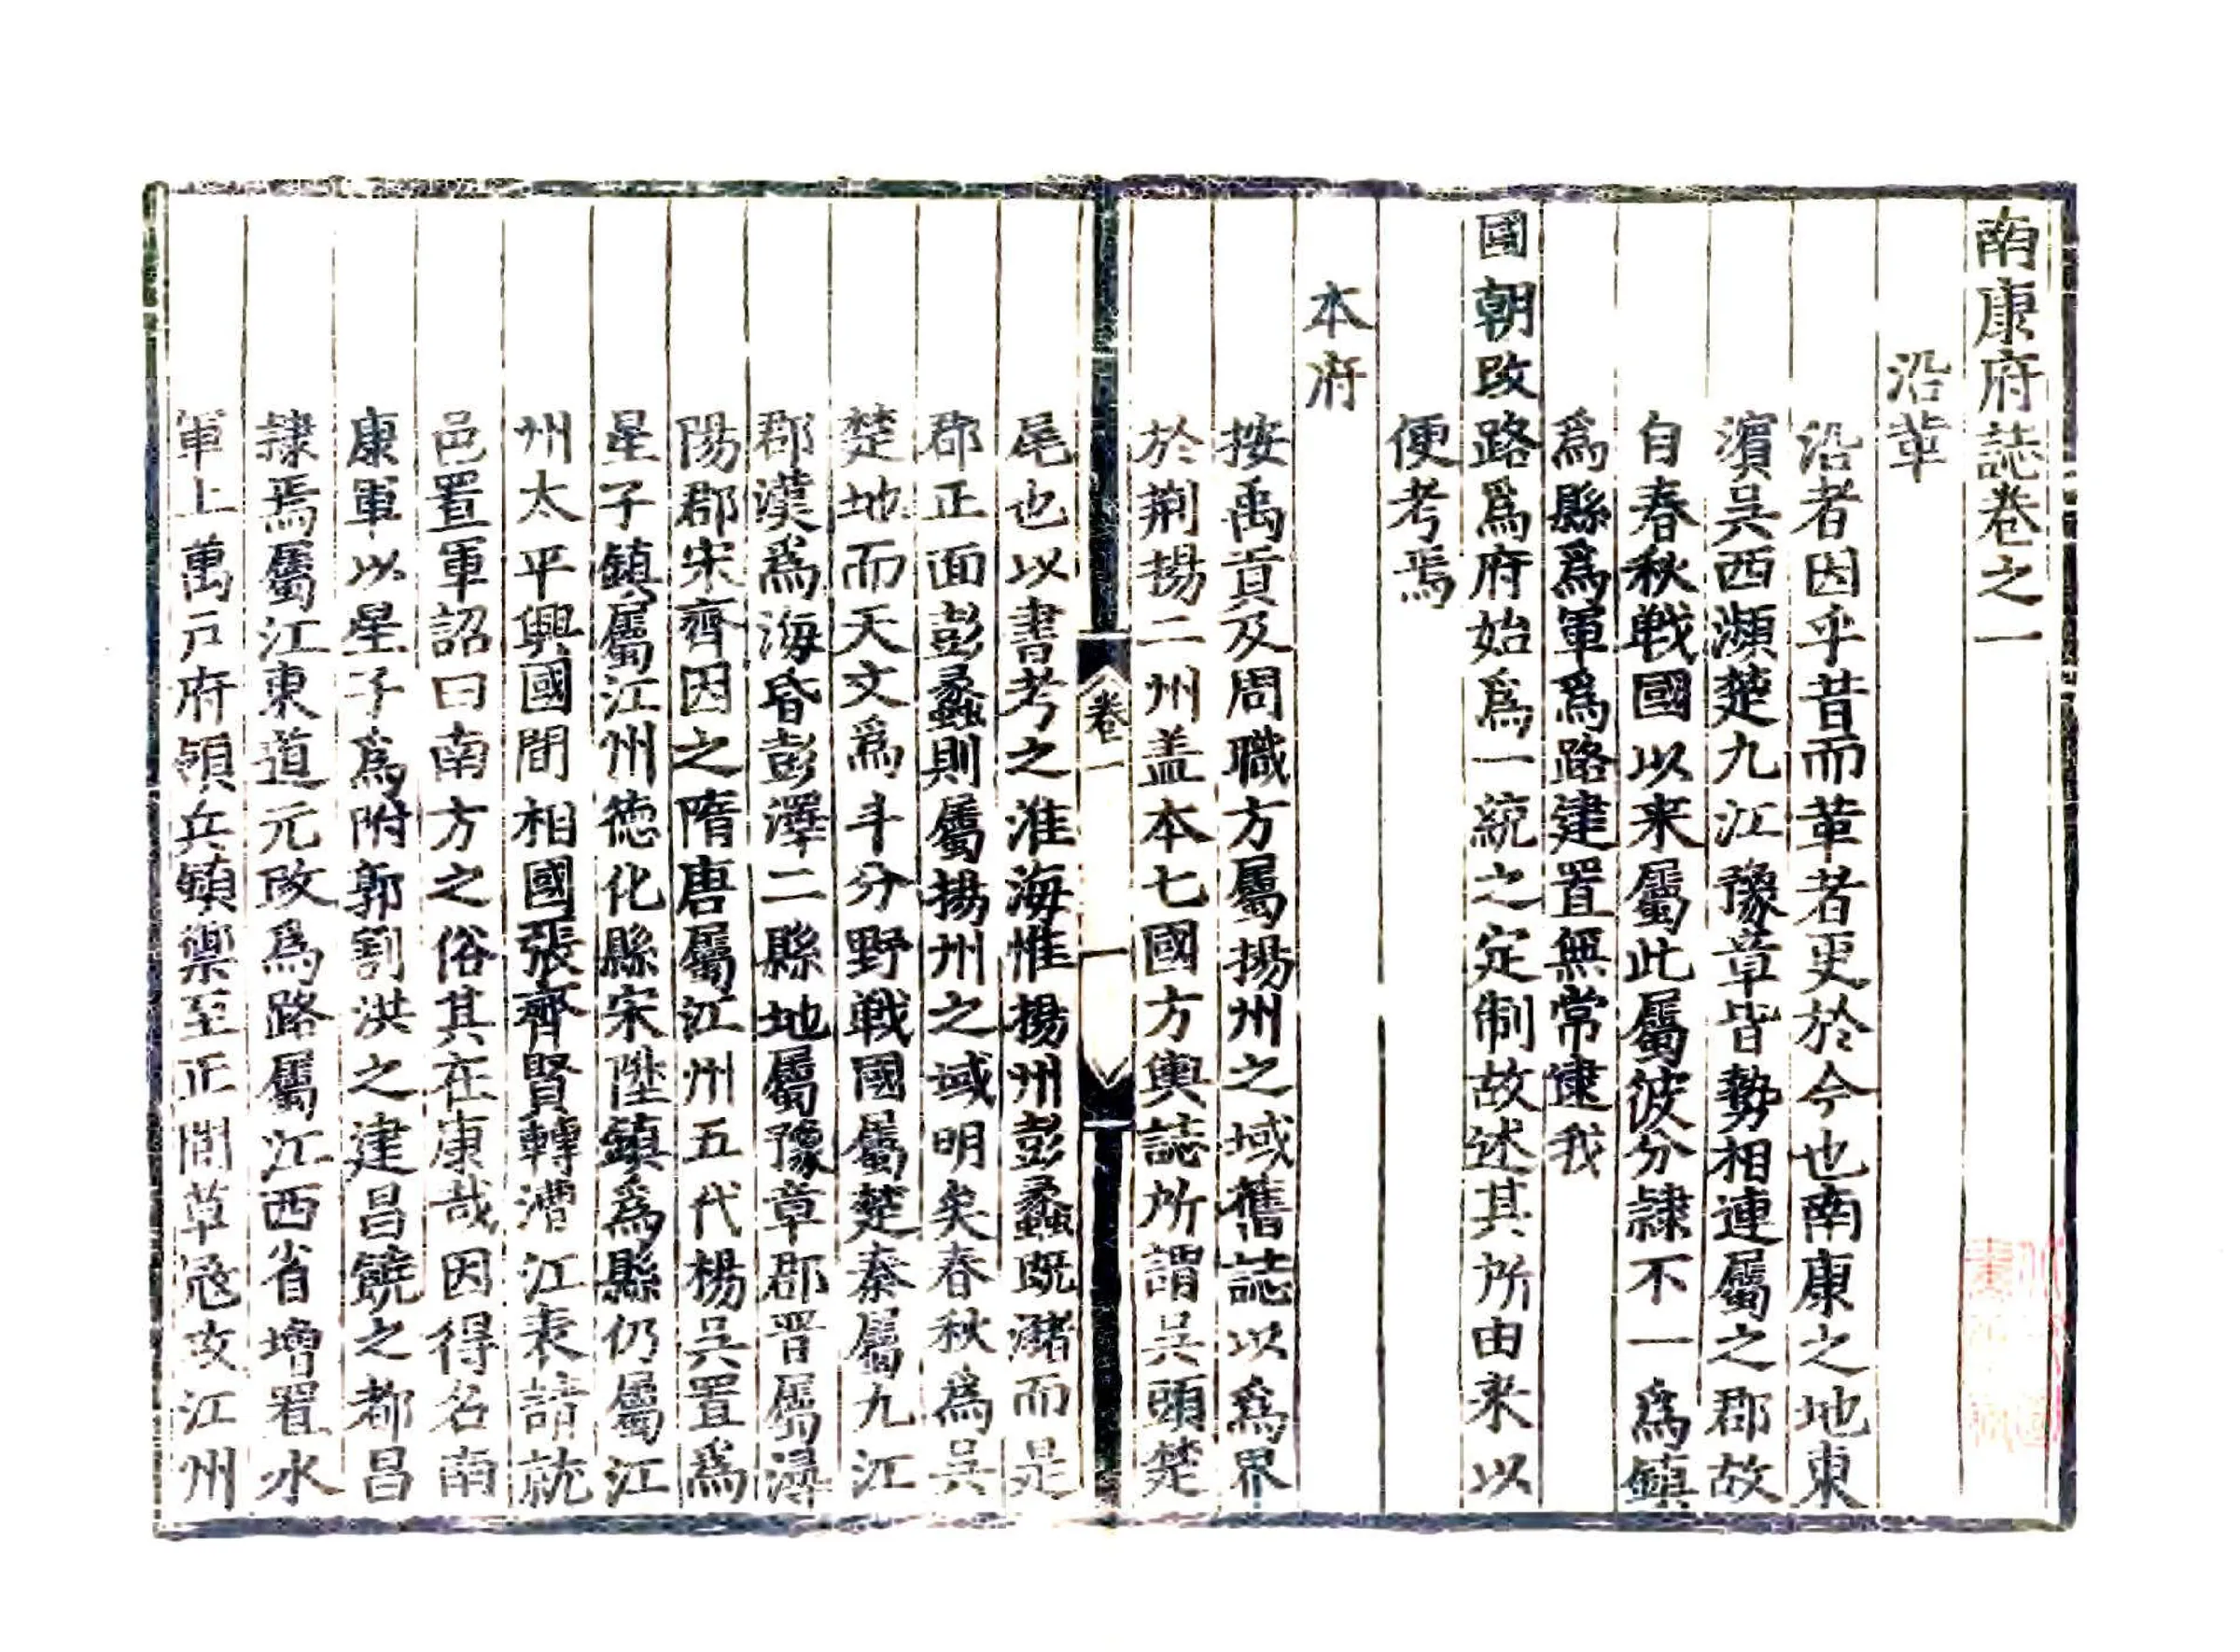 南康府誌卷之一
沿革
沿者因乎昔而革者更於今也南康之地東
濵吳西瀕楚九江豫章皆勢相連屬之郡故
自春秋戰國以来屬此屬彼分隷不一爲鎮
爲縣爲軍爲路建置無常逮我
國朝改路爲府始爲一統之定制故述其所由来以
便考焉
本府
按禹貢及周職方屬揚州之域舊誌以爲界
於荆揚二州盖本七國方輿誌所謂吳頭楚
卷一
一
尾也以書考之淮海惟揚州彭蠡既瀦而是
郡正面彭蠡則屬揚州之域明矣春秋爲吳
楚地而天文爲斗分野戰國屬楚秦屬九江
郡漢爲海昏彭澤二縣地屬豫章郡晋屬潯
陽郡宋齊因之隋唐屬江州五代楊吳置爲
星子鎮屬江州德化縣宋陞鎮爲縣仍屬江
州太平興國間相國張齊賢轉漕江表請就
邑置軍詔曰南方之俗其在康哉因得名南
康軍以星子爲附郭割洪之建昌饒之都昌
隷焉屬江東道元改爲路屬江西省增置水
軍上萬户府領兵鎮禦至正間草冦攻江州